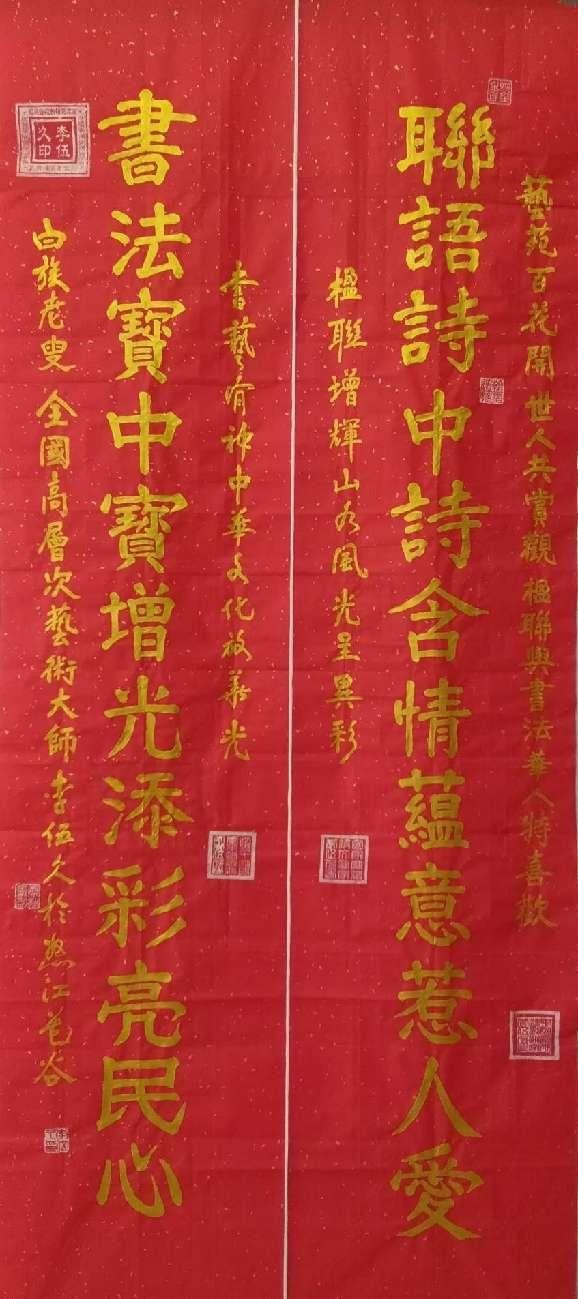 藝苑百花開世人共賞觀楹聯與書法華人特喜歡
聯語詩中詩含情蘊意惹人愛
楹聯增輝山水風光呈異彩
書藝有神中華文化放華光
書法寶中寶增光添彩亮民心
白族老叟 全國高層次藝術大師李伍久於怒江峇谷
李伍
久印